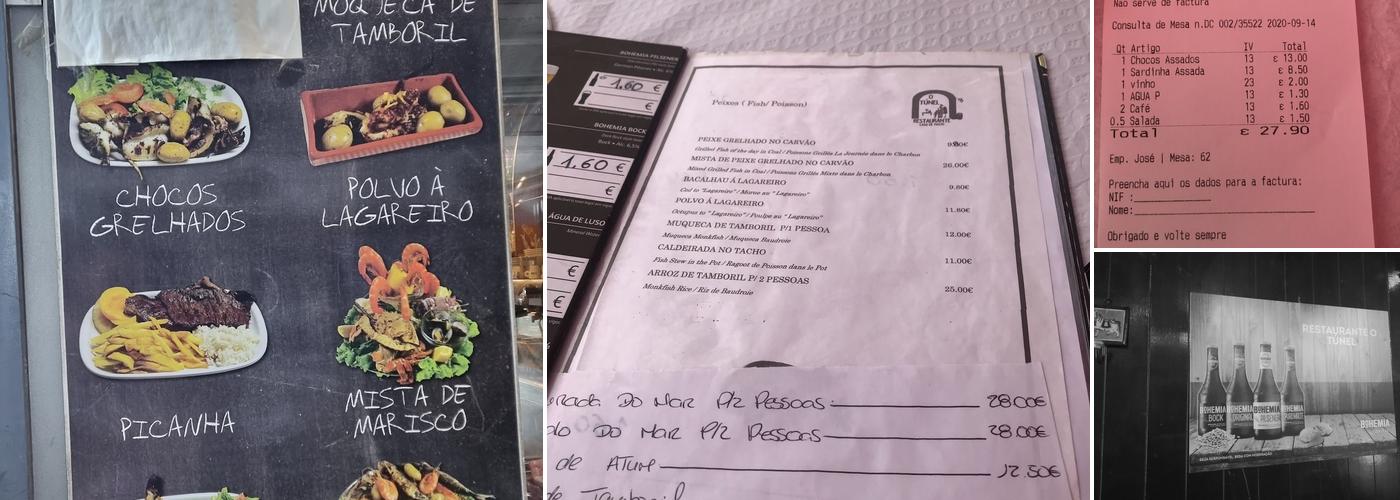 MOQUECA DE
TAMBORIL
CHOCOS
GRELHADOS
POLVO À
LAGAREIRO
PICANHA
MISTA DE
MARISCO
BOHEMIA PILSENER
1,60 €
€
BOHEMIA BOCK
1,60 €
€
ÁGUA DE LUSO
€
€
Peixes ( Fish/ Poisson)
O
TÚNEL
RESTAURANTE
PEIXE GRELHADO NO CARVÃO
Grilled Fish of the day in Coal / Poissons Grillés La Journée dans le Charbon
MISTA DE PEIXE GRELHADO NO CARVÃO 26.00€
Mixed Grilled Fish in Coal / Poissons Grillés Mixte dans le Charbon
BACALHAU Á LAGAREIRO 9.80€
Cod to "Lagareiro" / Morue au " Lagareiro"
POLVO Á LAGAREIRO 11.80€
Octupus to " Lagareiro"/ Poulpe au " Lagareiro"
MUQUECA DE TAMBORIL P/1 PESSOA 12.00€
Muqueca Monkfish / Muqueca Baudroie
CALDEIRADA NO TACHO 11.00€
Fish Stew in the Pot / Ragoot de Poisson dans le Pot
ARROZ DE TAMBORIL P/ 2 PESSOAS 25.00€
Monkfish Rice / Riz de Baudroie
DO MAR P/2 PESSOAS 28.00€
DO MAR P/2 PESSOAS 28.00€
de ATUM 12.50€
de Tamboril
Não serve de factura
Consulta de Mesa n.DC 002/35522 2020-09-14
Qt Artigo IV Total
1 Chocos Assados 13 € 13.00
1 Sardinha Assada 13 € 8.50
1 vinho 23 € 2.00
1 AGUA P 13 € 1.30
2 Café 13 € 1.60
0.5 Salada 13 € 1.50
Total € 27.90
Emp. José | Mesa: 62
Preencha aqui os dados para a factura:
NIF :
Nome:
Obrigado e volte sempre
RESTAURANTE O
TÚNEL
BOHEMIA
BOCK
BOHEMIA
ORIGINAL
BOHEMIA
PILSENER
BOHEMIA
BOHEMIA
SEJA RESPONSÁVEL. BEBA COM MODERAÇÃO.